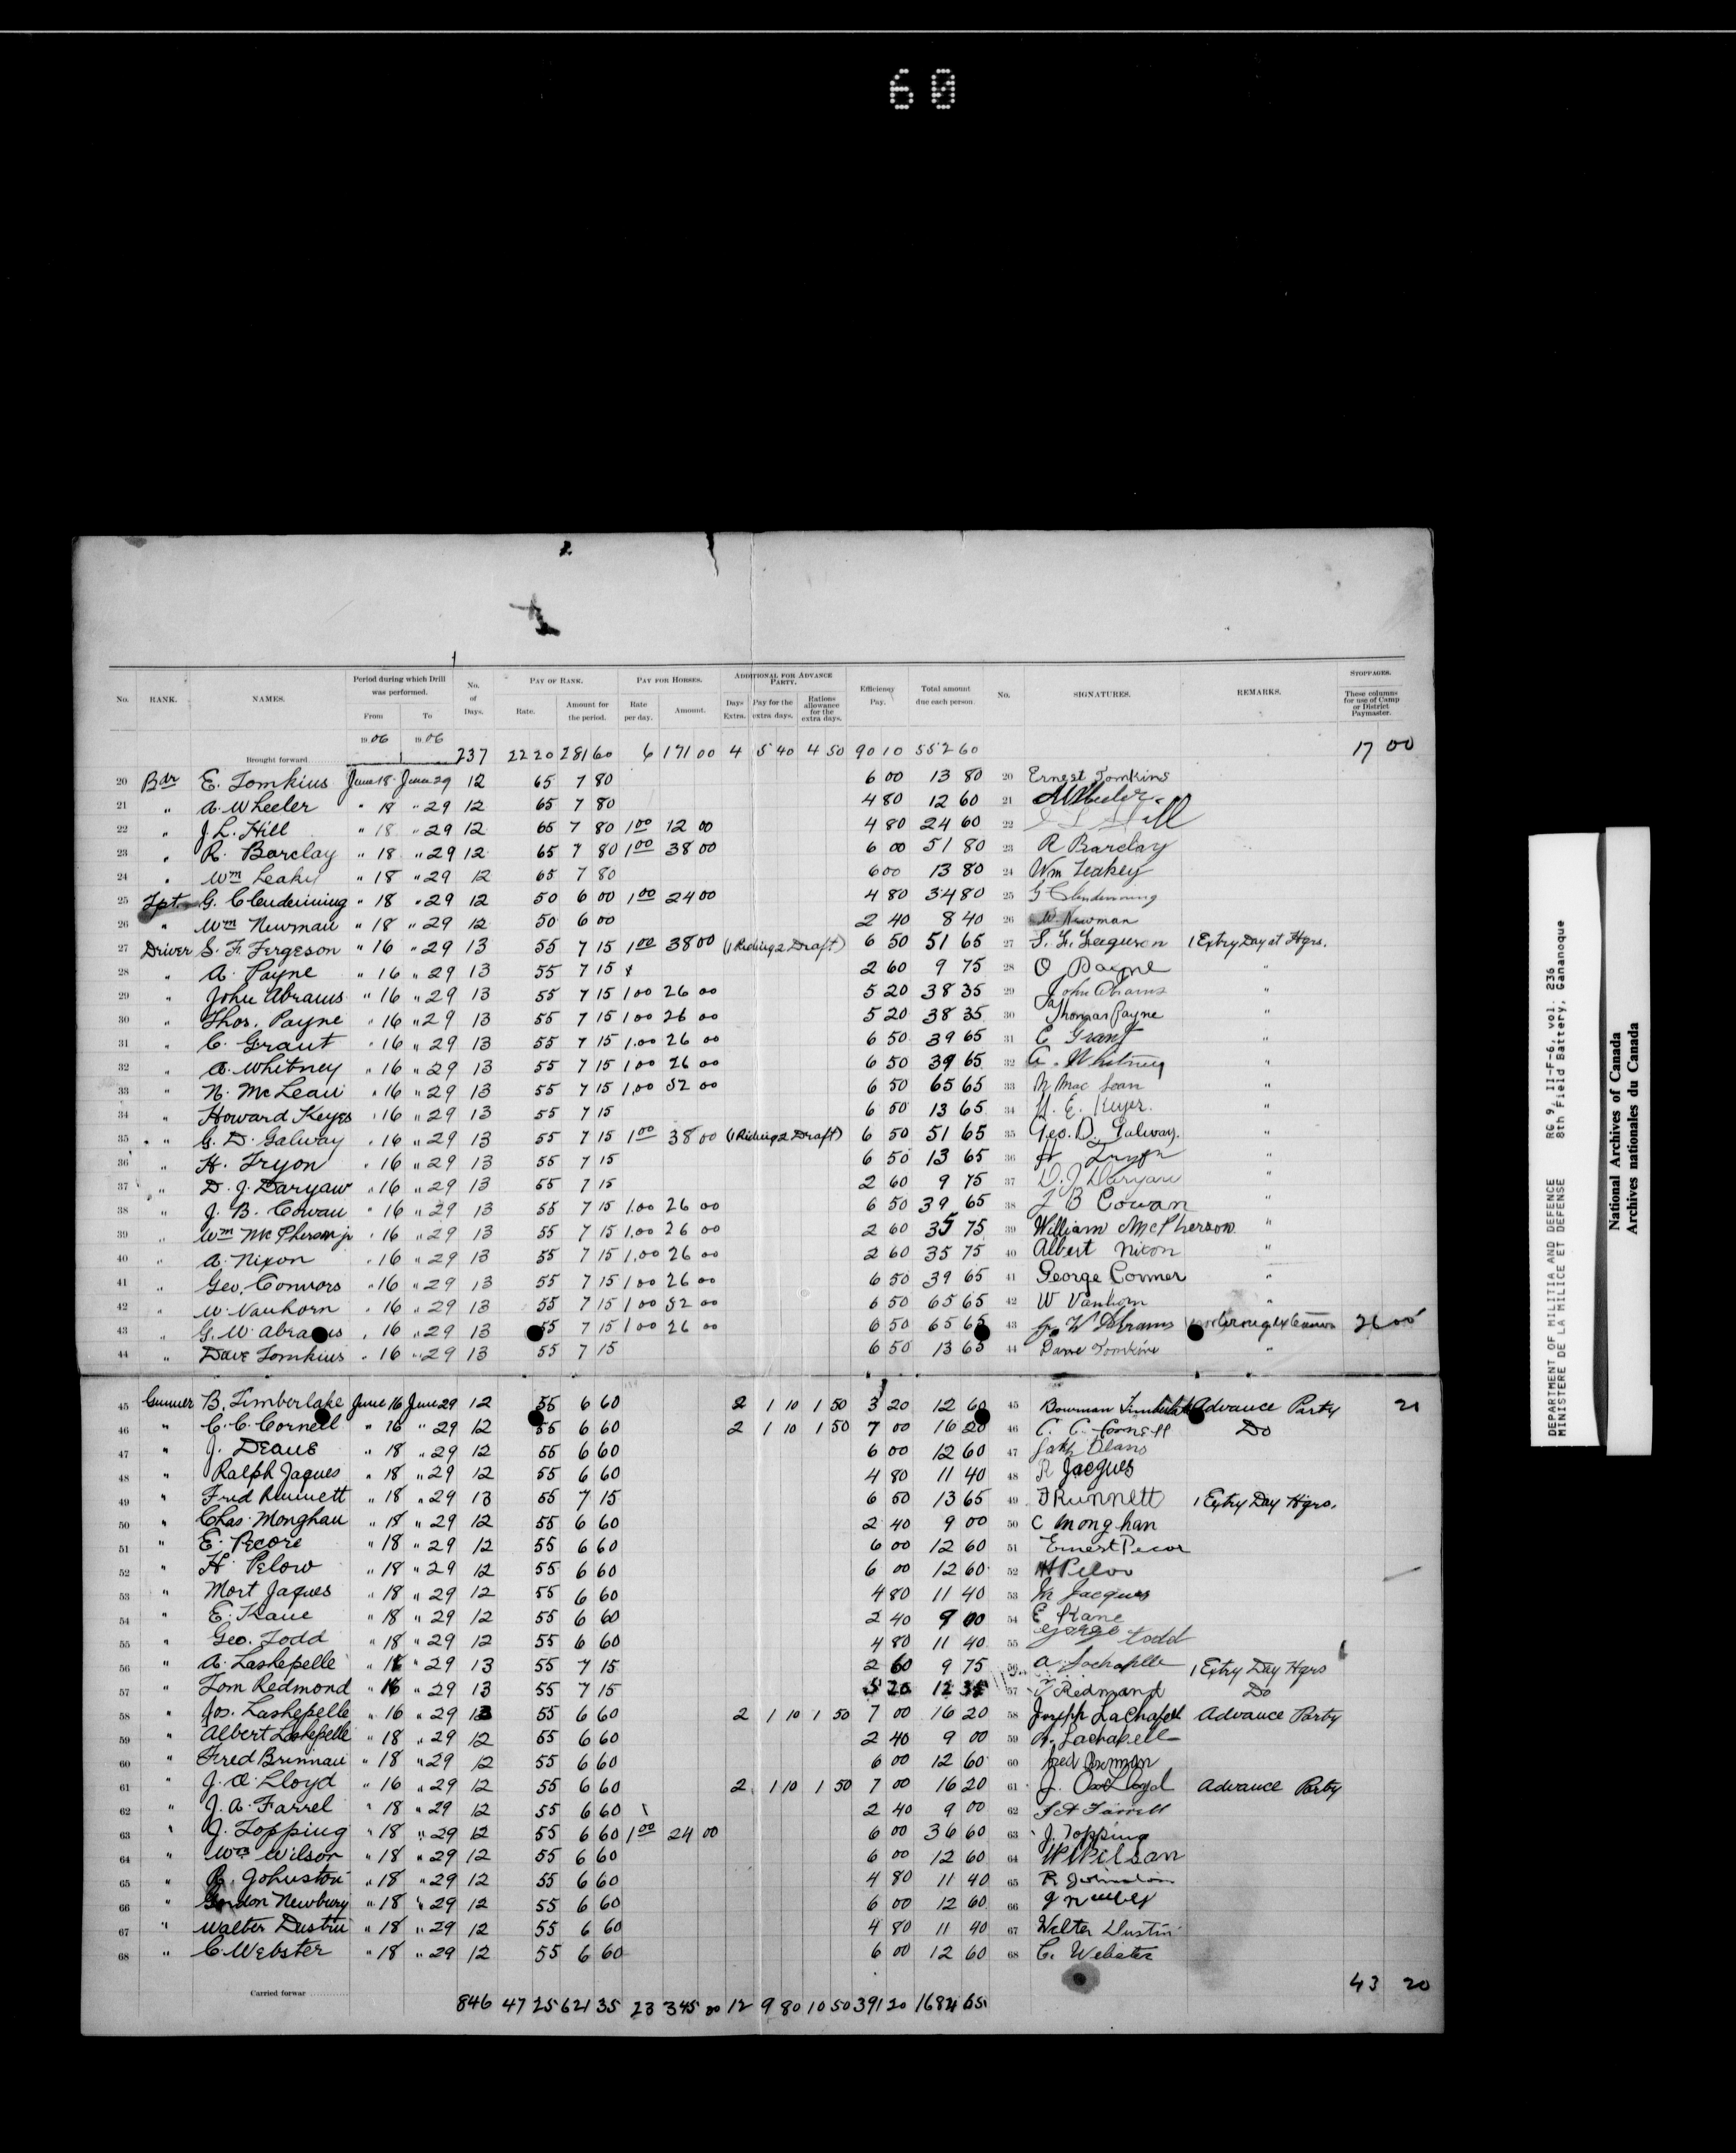 60
No. RANK. NAMES. Period during which Drill was performed. From To No. of Days. PAY OF RANK. Rate. Amount for the period. PAY FOR HORSES. Rate per day. Amount. ADDITIONAL FOR ADVANCE PARTY. Days Extra. Pay for the extra days. Rations allowance for the extra days. Efficiency Pay. Total amount due each person. No. SIGNATURES. REMARKS. STOPPAGES. These columns for use of Camp or District Paymaster.
1906 1906
Brought forward 237 22 20 281 60 6 171 00 4 5 40 4 50 90 10 552 60 17 00
20 Bdr E. Tomkins June 18 June 29 12 65 7 80 6 00 13 80 20 Ernest Tomkins
21 " A. Wheeler " 18 " 29 12 65 7 80 4 80 12 60 21 A Wheeler
22 " J. L. Hill " 18 " 29 12 65 7 80 1 00 12 00 4 80 24 60 22 J L Hill
23 " R. Barclay " 18 " 29 12 65 7 80 1 00 38 00 6 00 51 80 23 R Barclay
24 " Wm Leakey " 18 " 29 12 65 7 80 6 00 13 80 24 Wm Leakey
25 Tpt. G. Clendenning " 18 " 29 12 50 6 00 1 00 24 00 4 80 34 80 25 G Clendenning
26 " Wm Newman " 18 " 29 12 50 6 00 2 40 8 40 26 W. Newman
27 Driver S. F. Fergeson " 16 " 29 13 55 7 15 1 00 38 00 (1 Riding 2 Draft) 6 50 51 65 27 S. F. Ferguson 1 Extry Day at Hqrs.
28 " A. Payne " 16 " 29 13 55 7 15 2 60 9 75 28 O Payne "
29 " John Abrams " 16 " 29 13 55 7 15 1 00 26 00 5 20 38 35 29 John Abrams "
30 " Thos. Payne " 16 " 29 13 55 7 15 1 00 26 00 5 20 38 35 30 Thomas Payne "
31 " C. Grant " 16 " 29 13 55 7 15 1.00 26 00 6 50 39 65 31 C Grant "
32 " A. Whitney " 16 " 29 13 55 7 15 1.00 26 00 6 50 39 65 32 A. Whitney "
33 " N. McLean " 16 " 29 13 55 7 15 1.00 52 00 6 50 65 65 33 N Mac Lean "
34 " Howard Keyes " 16 " 29 13 55 7 15 6 50 13 65 34 H. E. Keyes. "
35 " G. D. Galway " 16 " 29 13 55 7 15 1 00 38 00 (1 Riding 2 Draft) 6 50 51 65 35 Geo. D. Galway. "
36 " H. Tryon " 16 " 29 13 55 7 15 6 50 13 65 36 H Tryon "
37 " D. J. Daryaw " 16 " 29 13 55 7 15 2 60 9 75 37 D. J Daryaw "
38 " J. B. Cowan " 16 " 29 13 55 7 15 1.00 26 00 6 50 39 65 38 J B Cowan "
39 " Wm McPherson jr " 16 " 29 13 55 7 15 1.00 26 00 2 60 35 75 39 William McPherson "
40 " A. Nixon " 16 " 29 13 55 7 15 1.00 26 00 2 60 35 75 40 Albert Nixon "
41 " Geo. Connors " 16 " 29 13 55 7 15 1 00 26 00 6 50 39 65 41 George Conner "
42 " W. Vanhorn " 16 " 29 13 55 7 15 1 00 52 00 6 50 65 65 42 W Vanhorn "
43 " G. W. Abrams " 16 " 29 13 55 7 15 1 00 26 00 6 50 65 65 43 G W Abrams 26 00
44 " Dave Tomkins " 16 " 29 13 55 7 15 6 50 13 65 44 Dave Tomkins "
45 Gunner B. Timberlake June 16 June 29 12 55 6 60 2 1 10 1 50 3 20 12 60 45 Bowman Timberlake Advance Party 20
46 " C. C. Cornell " 16 " 29 12 55 6 60 2 1 10 1 50 7 00 16 20 46 C. C. Cornell Do
47 " J. Deans " 18 " 29 12 55 6 60 6 00 12 60 47 Deans
48 " Ralph Jaques " 18 " 29 12 55 6 60 4 80 11 40 48 R Jacques
49 " Fred Runnett " 18 " 29 13 55 7 15 6 50 13 65 49 F Runnett 1 Extry Day Hqrs.
50 " Chas. Monghan " 18 " 29 12 55 6 60 2 40 9 00 50 C Monghan
51 " E. Pecore " 18 " 29 12 55 6 60 6 00 12 60 51 Ernest Pecor
52 " H. Pelow " 18 " 29 12 55 6 60 6 00 12 60 52 H Peloo
53 " Mort Jaques " 18 " 29 12 55 6 60 4 80 11 40 53 M Jacques
54 " E. Kane " 18 " 29 12 55 6 60 2 40 9 00 54 E Kane
55 " Geo. Todd " 18 " 29 12 55 6 60 4 80 11 40 55 George todd
56 " A. Lashepelle " 16 " 29 13 55 7 15 2 60 9 75 56 A. Lachapelle 1 Extry Day Hqrs
57 " Tom Redmond " 16 " 29 13 55 7 15 5 20 12 35 57 Redmond Do
58 " Jos. Lashepelle " 16 " 29 12 55 6 60 2 1 10 1 50 7 00 16 20 58 Joseph LaChapell Advance Party
59 " Albert Lashepelle " 18 " 29 12 55 6 60 2 40 9 00 59 A. Lachapell
60 " Fred Brennan " 18 " 29 12 55 6 60 6 00 12 60 60 fred
61 " J. A. Lloyd " 16 " 29 12 55 6 60 2 1 10 1 50 7 00 16 20 61 J. Lloyd Advance Party
62 " J. A. Farrel " 18 " 29 12 55 6 60 2 40 9 00 62 J A Farrell
63 " J. Topping " 18 " 29 12 55 6 60 1 00 24 00 6 00 36 60 63 J. Topping
64 " Wm Wilson " 18 " 29 12 55 6 60 6 00 12 60 64 W Wilson
65 " R. Johnston " 18 " 29 12 55 6 60 4 80 11 40 65 R Johnston
66 " Gordon Newbury " 18 " 29 12 55 6 60 6 00 12 60 66
67 " Walter Dustin " 18 " 29 12 55 6 60 4 80 11 40 67 Walter Dustin
68 " C. Webster " 18 " 29 12 55 6 60 6 00 12 60 68 C. Webster
43 20
Carried forwar 846 47 25 621 35 23 345 00 12 9 80 10 50 391 20 1684 65
DEPARTMENT OF MILITIA AND DEFENCE RG 9, II-F-6, vol. 236
MINISTERE DE LA MILICE ET DEFENSE 8th Field Battery, Gananoque
National Archives of Canada
Archives nationales du Canada